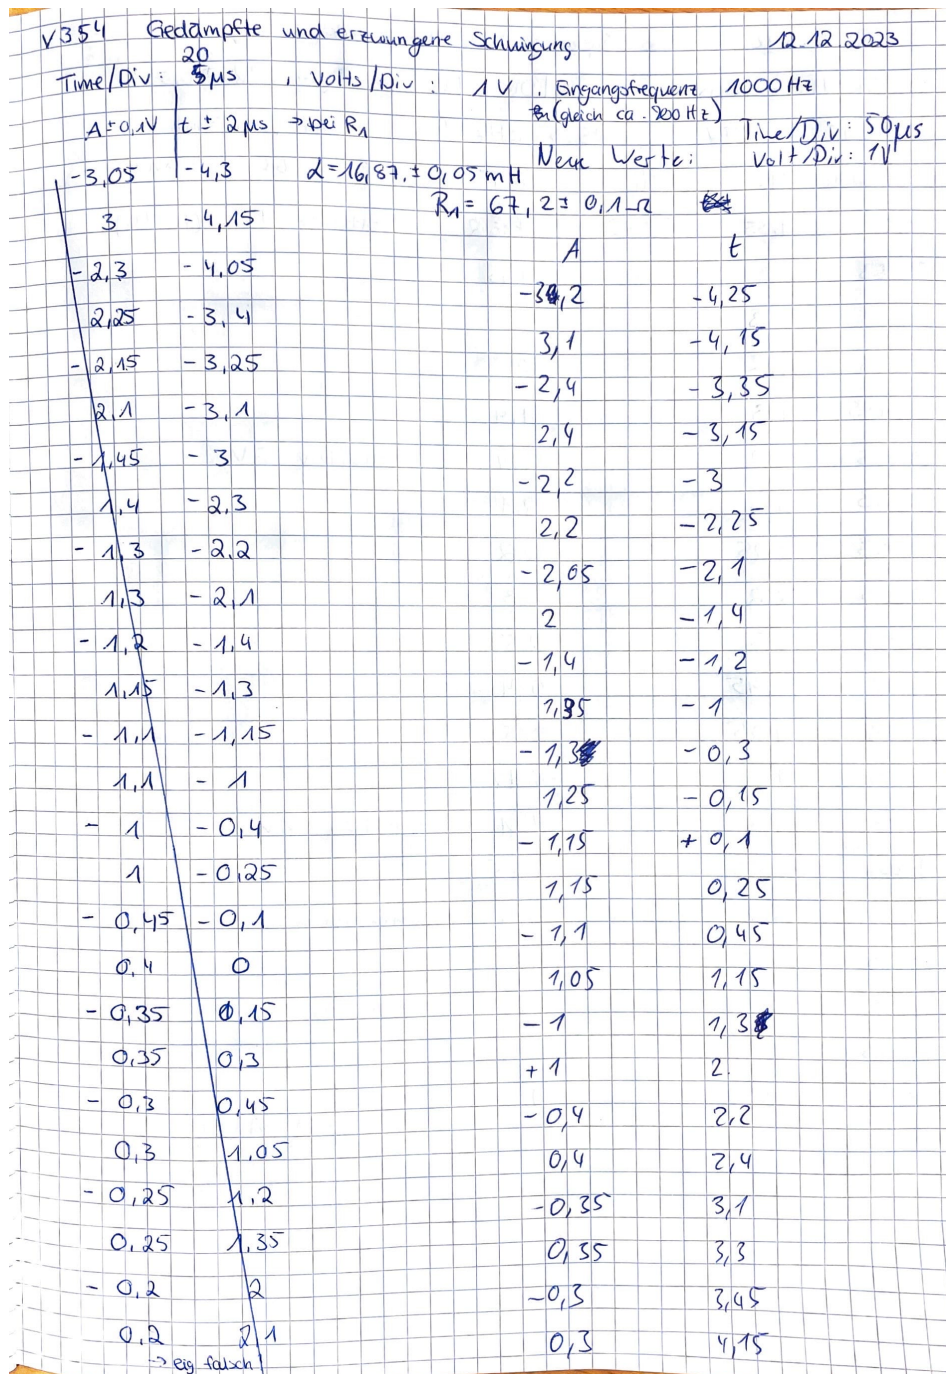 V354 Gedämpfte und erzwungene Schwingung 12.12.2023
20
Time/Div: 5µs , Volts/Div: 1V , Eingangsfrequenz 1000Hz
(gleich ca. 900 Hz)
A±0,1V t ± 2µs → bei R1
Time/Div: 50µs
Neue Werte: Volt/Div: 1V
L=16,87 ± 0,05 mH
R1 = 67,2 ± 0,1 Ω
-3,05 -4,3
3 -4,15
-2,3 -4,05
2,25 -3,4
-2,15 -3,25
2,1 -3,1
-1,45 -3
1,4 -2,3
-1,3 -2,2
1,3 -2,1
-1,2 -1,4
1,15 -1,3
-1,1 -1,15
1,1 -1
-1 -0,4
1 -0,25
-0,45 -0,1
0,4 0
-0,35 0,15
0,35 0,3
-0,3 0,45
0,3 1,05
-0,25 1,2
0,25 1,35
-0,2 2
0,2 2,1
→ eig falsch
A t
-3,2 -4,25
3,1 -4,15
-2,4 -3,35
2,4 -3,15
-2,2 -3
2,2 -2,25
-2,05 -2,1
2 -1,4
-1,4 -1,2
1,35 -1
-1,3 -0,3
1,25 -0,15
-1,15 +0,1
1,15 0,25
-1,1 0,45
1,05 1,15
-1 1,3
+1 2
-0,4 2,2
0,4 2,4
-0,35 3,1
0,35 3,3
-0,3 3,45
0,3 4,15